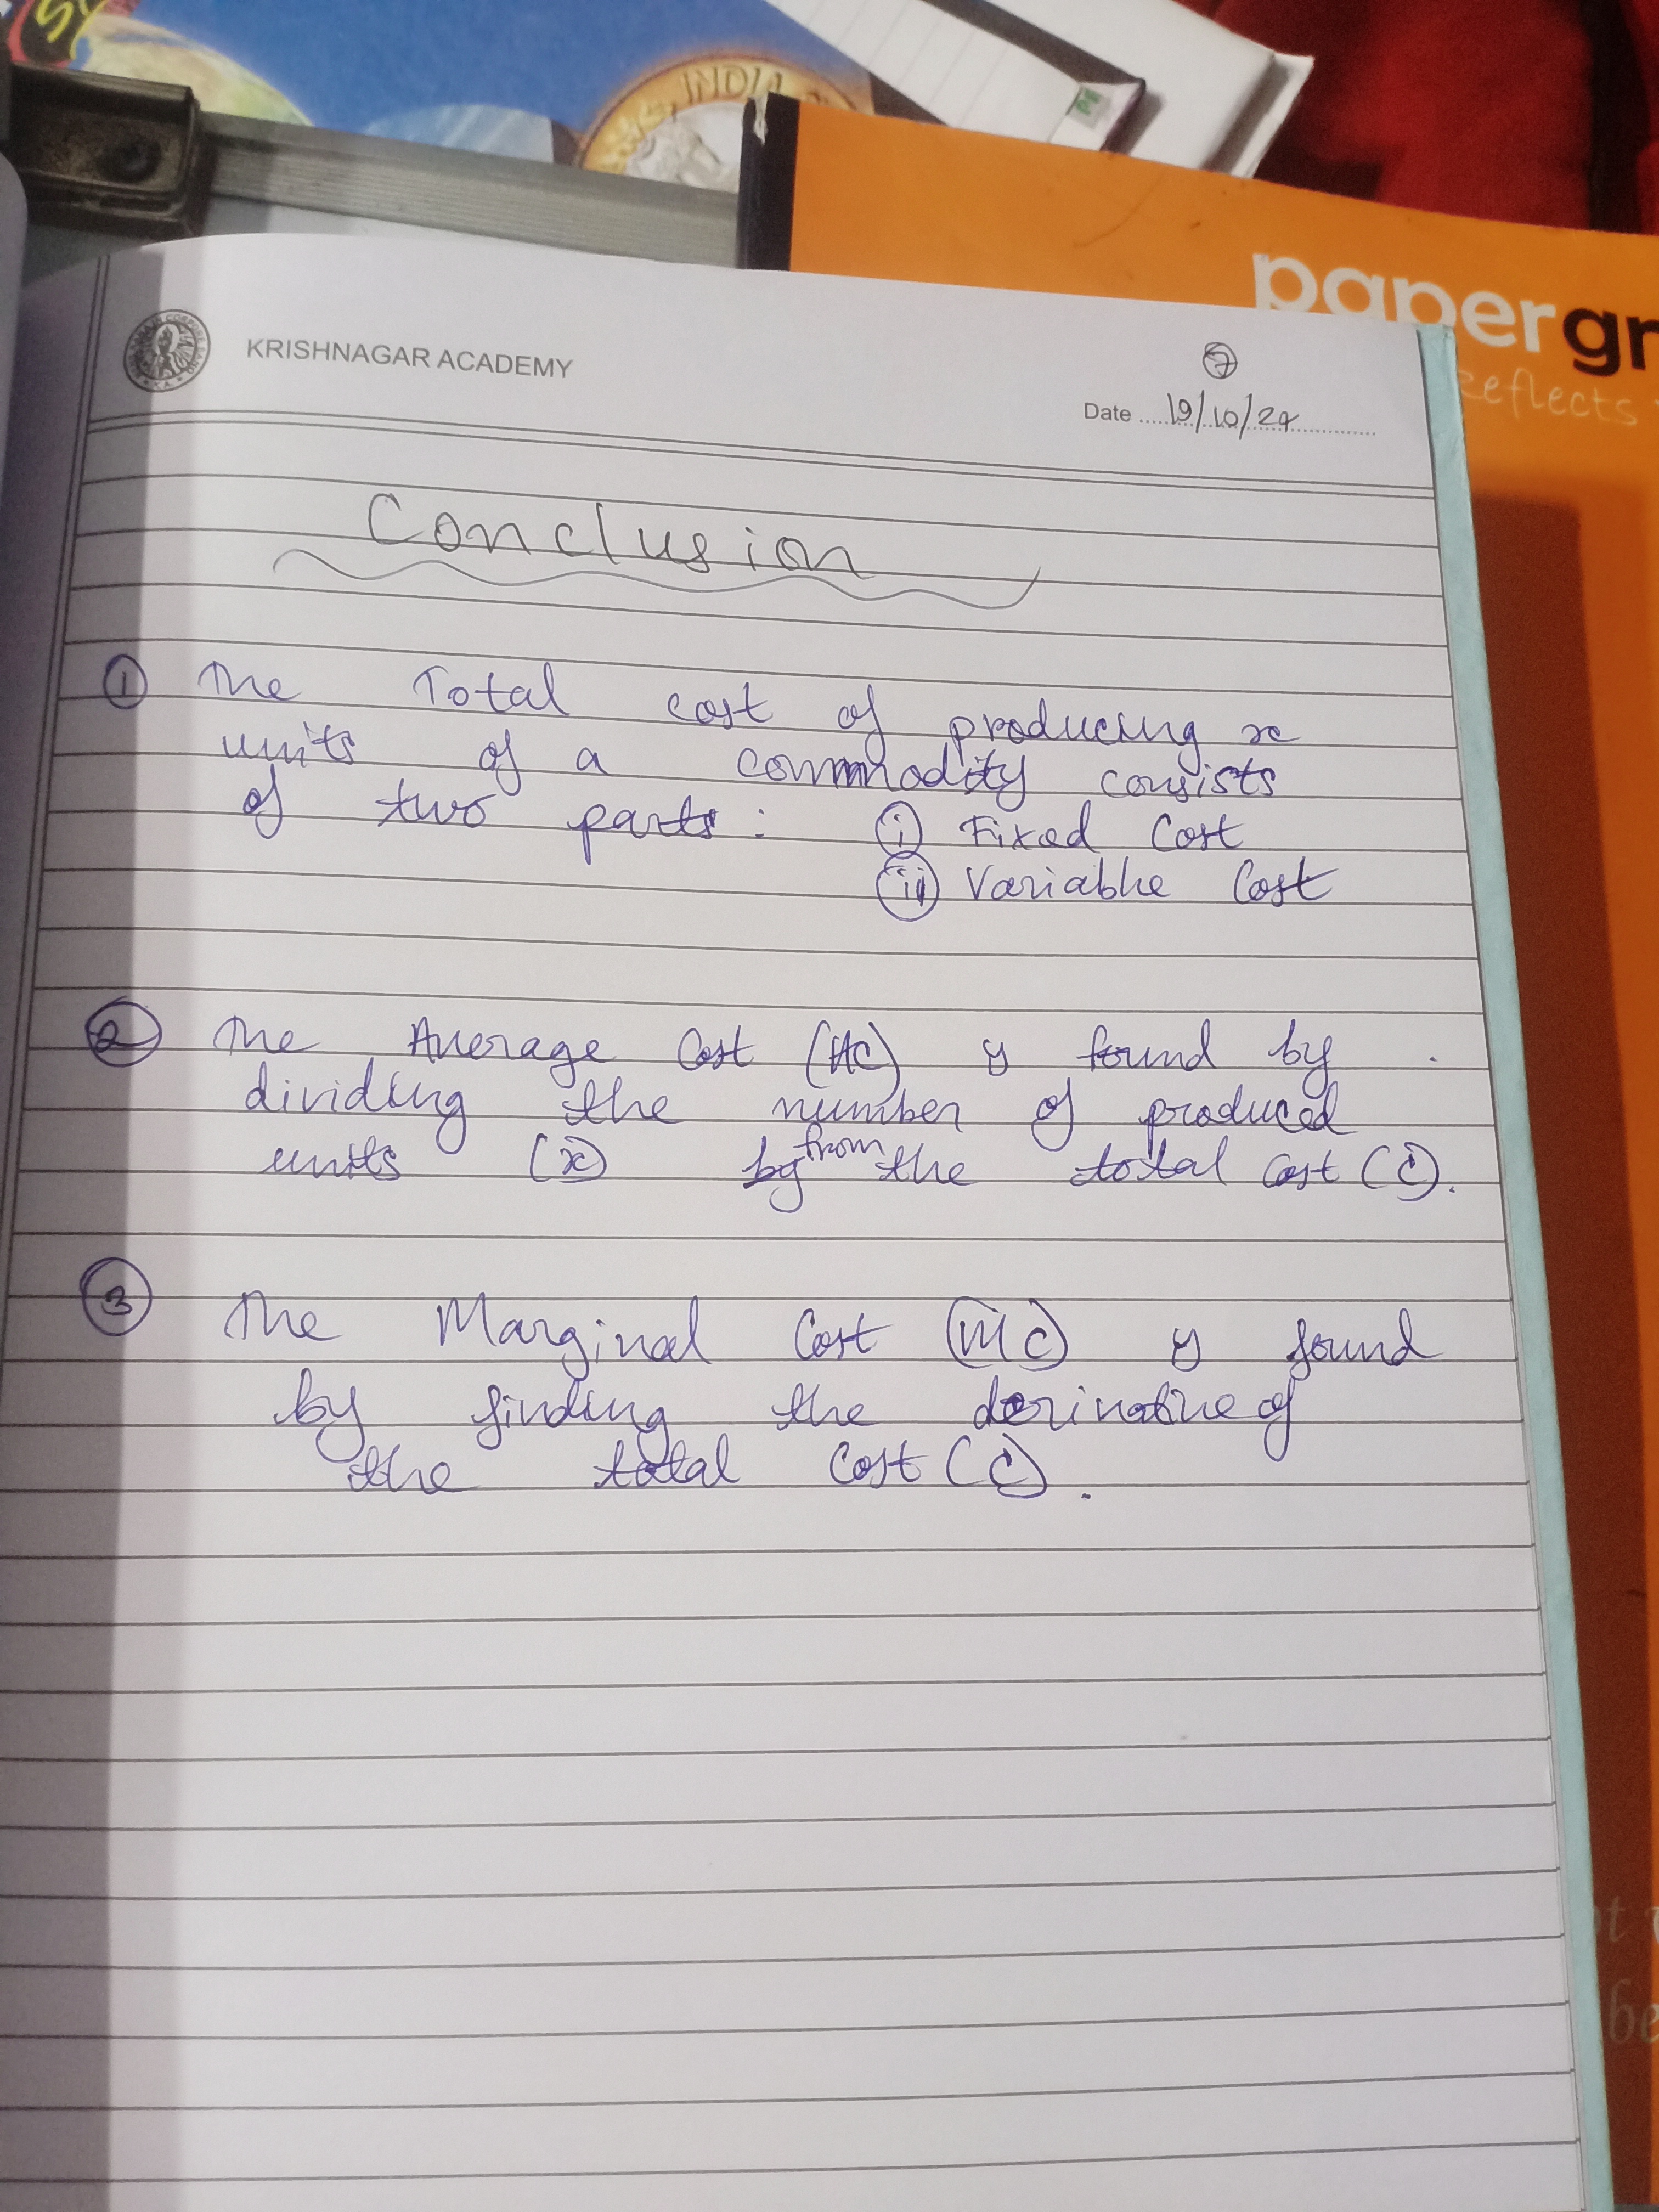 INDIA
papergr
Reflects
KRISHNAGAR ACADEMY
7
Date 19/10/24
Conclusion
1 The Total cost of producing x
units of a commodity consists
of two parts: i Fixed Cost
ii Variable Cost
2 The Average Cost (AC) is found by
dividing the number of produced
units (x) by from the total cost (C).
3 The Marginal Cost (MC) is found
by finding the derivative of
the total cost (C).